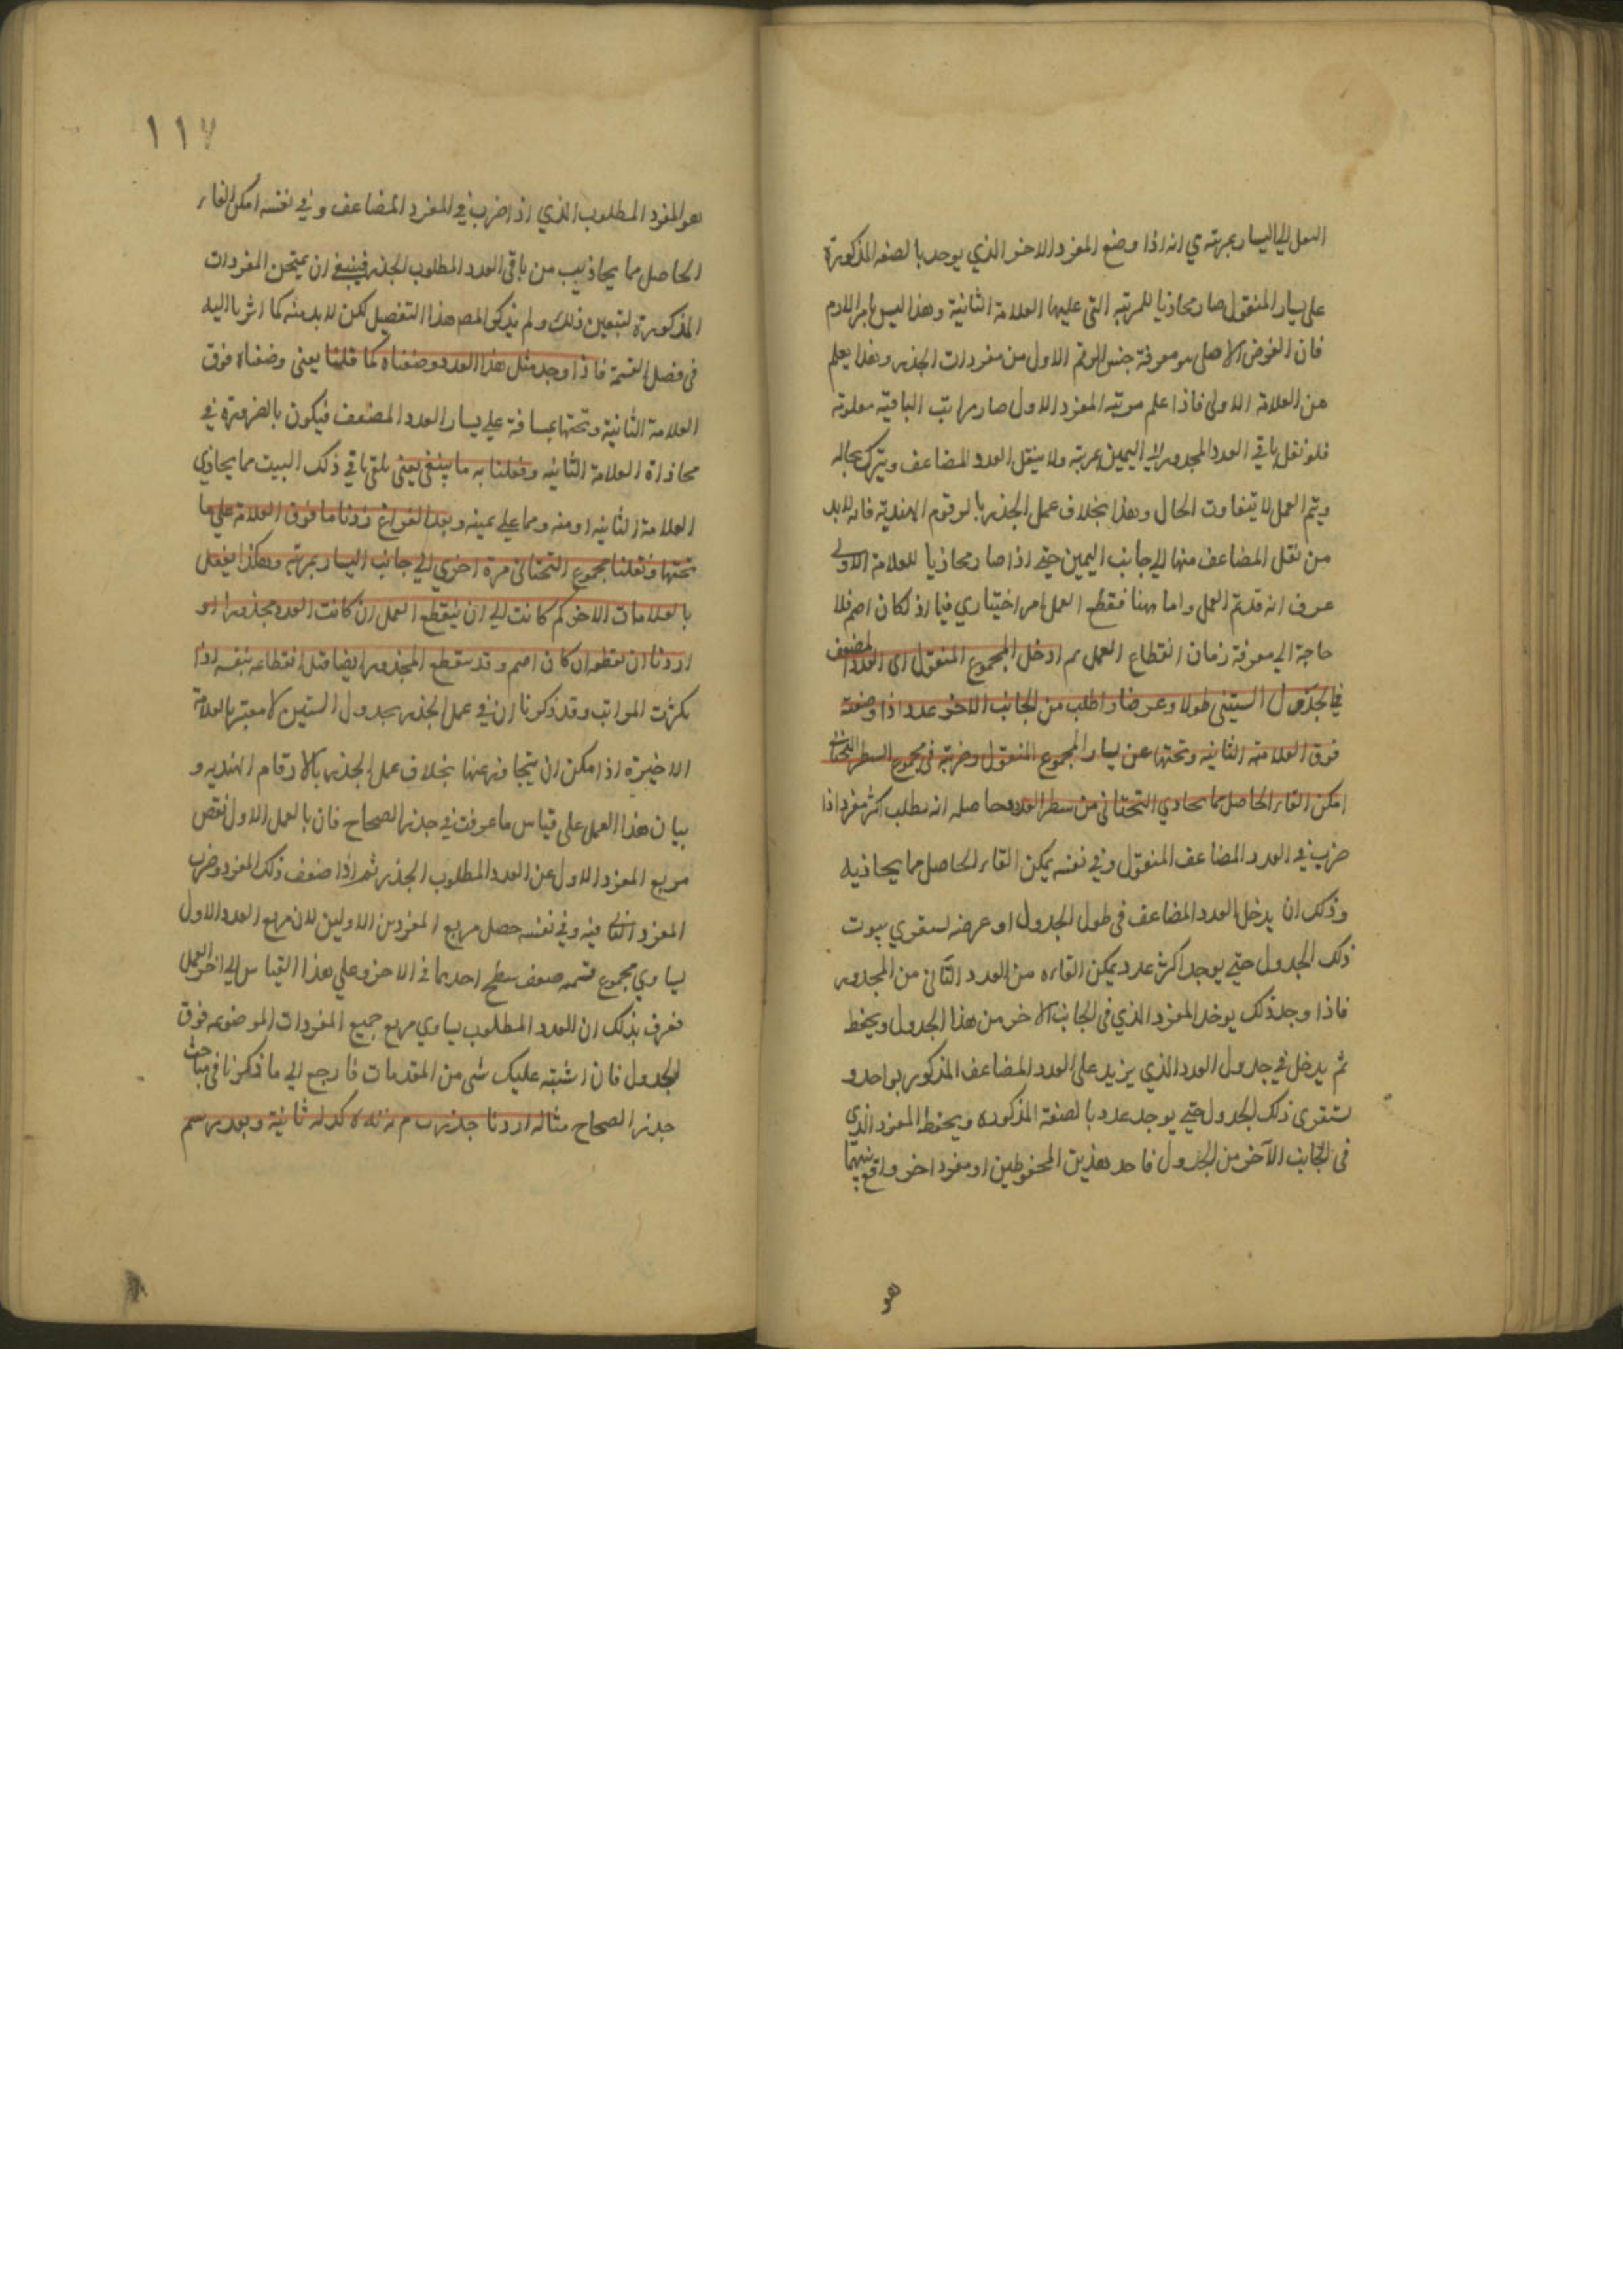 النقل الي اليسار بمرتبه ي انه اذا وضع المفرد الاخر الذي يوجد بالصفه المذكورة
علي يسار المنقول صار محاذيا للمرتبه التي عليها العلامة الثانية وهذا ليس بامر لازم
فان الغرض الاصلي هو معرفة جنس الرقم الاول من مفردات الجذر وهذا يعلم
من العلامة الاولي فاذا علم مرتبه المفرد الاول صار مراتب الباقية معلومة
فلو نقل باقي العدد المجذور الي اليمين بمرتبه ولا ينقل العدد المضاعف ويترك بحاله
ويتم العمل لا يتفاوت الحال وهذا بخلاف عمل الجذر بالرقوم الهندية فانه لا بد
من نقل المضاعف منها الي جانب اليمين حتي اذا صار محاذيا للعلامة الاولي
عرف انه قد تم العمل واما ههنا فقطع العمل امر اختياري فيما اذ لكان اصم فلا
حاجة الي معرفة زمان انقطاع العمل ثم ادخل المجموع المنقول اي العدد المضعف
في الجدول الستيني طولا وعرضا واطلب من الجانب الاخر عددا اذا وضعته
فوق العلامة الثانيه وتحتها عن يسار المجموع المنقول وضربته في مجموع السطر التحتاني
امكن القاء الحاصل مما يحاذي التحتاني من سطر العدد وحاصله انه يطلب اكثر مفرد اذا
ضرب في العدد المضاعف المنقول وفي نفسه يمكن القاء الحاصل مما يحاذيه
وذلك ان يدخل العدد المضاعف في طول الجدول او عرضه ليستقري بيوت
ذلك الجدول حتي يوجد اكثر عدد يمكن القاءه من العدد الثاني من المجذور
فاذا وجد ذلك يوخذ المفرد الذي في الجانب الاخر من هذا الجدول ويحفظ
ثم يدخل في جدول العدد الذي يزيد علي العدد المضاعف المذكور بواحد و
يستقري ذلك الجدول حتي يوجد عدد بالصفة المذكوره ويحفظ المفرد الذي
في الجانب الآخر من الجدول فاحد هذين المحفوظين او مفرد اخر واقع بينهما
هو
١١٧
هو المفرد المطلوب الذي اذا ضرب في المفرد المضاعف وفي نفسه امكن القاء
الحاصل مما يحاذيه من باقي العدد المطلوب الجذر فينبغي ان يمتحن المفردات
المذكورة لتبعين ذلك ولم يذكر المص هذا التفصيل لكن لا بد منه كما اشرنا اليه
في فصل القسمة فاذا وجد مثل هذا العدد وضعناه كما قلنا يعني وضعناه فوق
العلامة الثانية وتحتها بمسافة علي يسار العدد المضعف فيكون بالضرورة في
محاذاة العلامة الثانيه وفعلنا به ما ينبغي يعني نلقي باقي ذلك البيت مما يحاذي
العلامة الثانيه او منه ومما علي يمينه وبعد الفراغ زدنا ما فوق العلامة علي ما
تحتها ونقلنا مجموع التحتاني مرة اخري الي جانب اليسار بمرتبه وهكذا يفعل
بالعلامات الاخر كم كانت الي ان ينقطع العمل ان كانت العدد مجذورا او
اردنا ان نقطعه ان كان اصم وقد ينقطع المجذور ايضا قبل انقطاعه بنفسه اذا
كثرت المراتب وقد ذكرنا ان في عمل الجذر بجدول الستين لا معتبر بالعلامة
الاخيرة اذ امكن ان يتجاوز عنها بخلاف عمل الجذر بالارقام الهنديه و
بيان هذا العمل علي قياس ما عرفت في جذر الصحاح فان بالعمل الاول نقص
مربع المفرد الاول عن العدد المطلوب الجذر ثم اذا ضعف ذلك المفرد وضرب
المفرد الثاني فيه وفي نفسه حصل مربع المفردين الاولين لان مربع العدد الاول
يساوي مجموع قسمه ضعف سطح احدهما في الاخر وعلي هذا القياس الي اخر العمل
فعرف بذلك ان العدد المطلوب يساوي مربع جميع المفردات الموضوعه فوق
الجدول فان اشتبه عليك شي من المقدمات فارجع الي ما ذكرنا في مباحث
جذر الصحاح مثاله اردنا جذر ثانية وبعد رسم